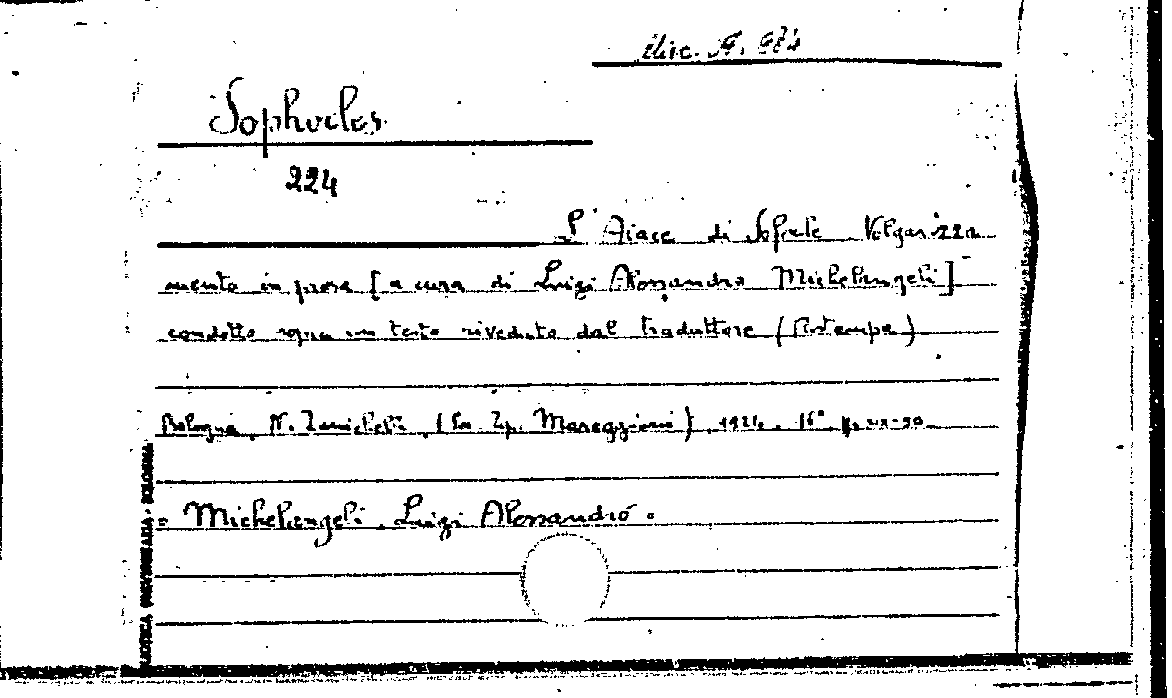 Misc. A. 984
Sophocles
224
L'Aiace di Sofocle Volgarizza
mento in prosa [a cura di Luigi Alessandro Michelangeli]
condotto sopra un testo riveduto dal traduttore (Ristampa)
Bologna, N. Zanichelli, (Co. Tip. Mareggiani), 1924. 16° p. XIX-90
= Michelangeli, Luigi Alessandro.
UNIVERSITARIA - BOLOGNA